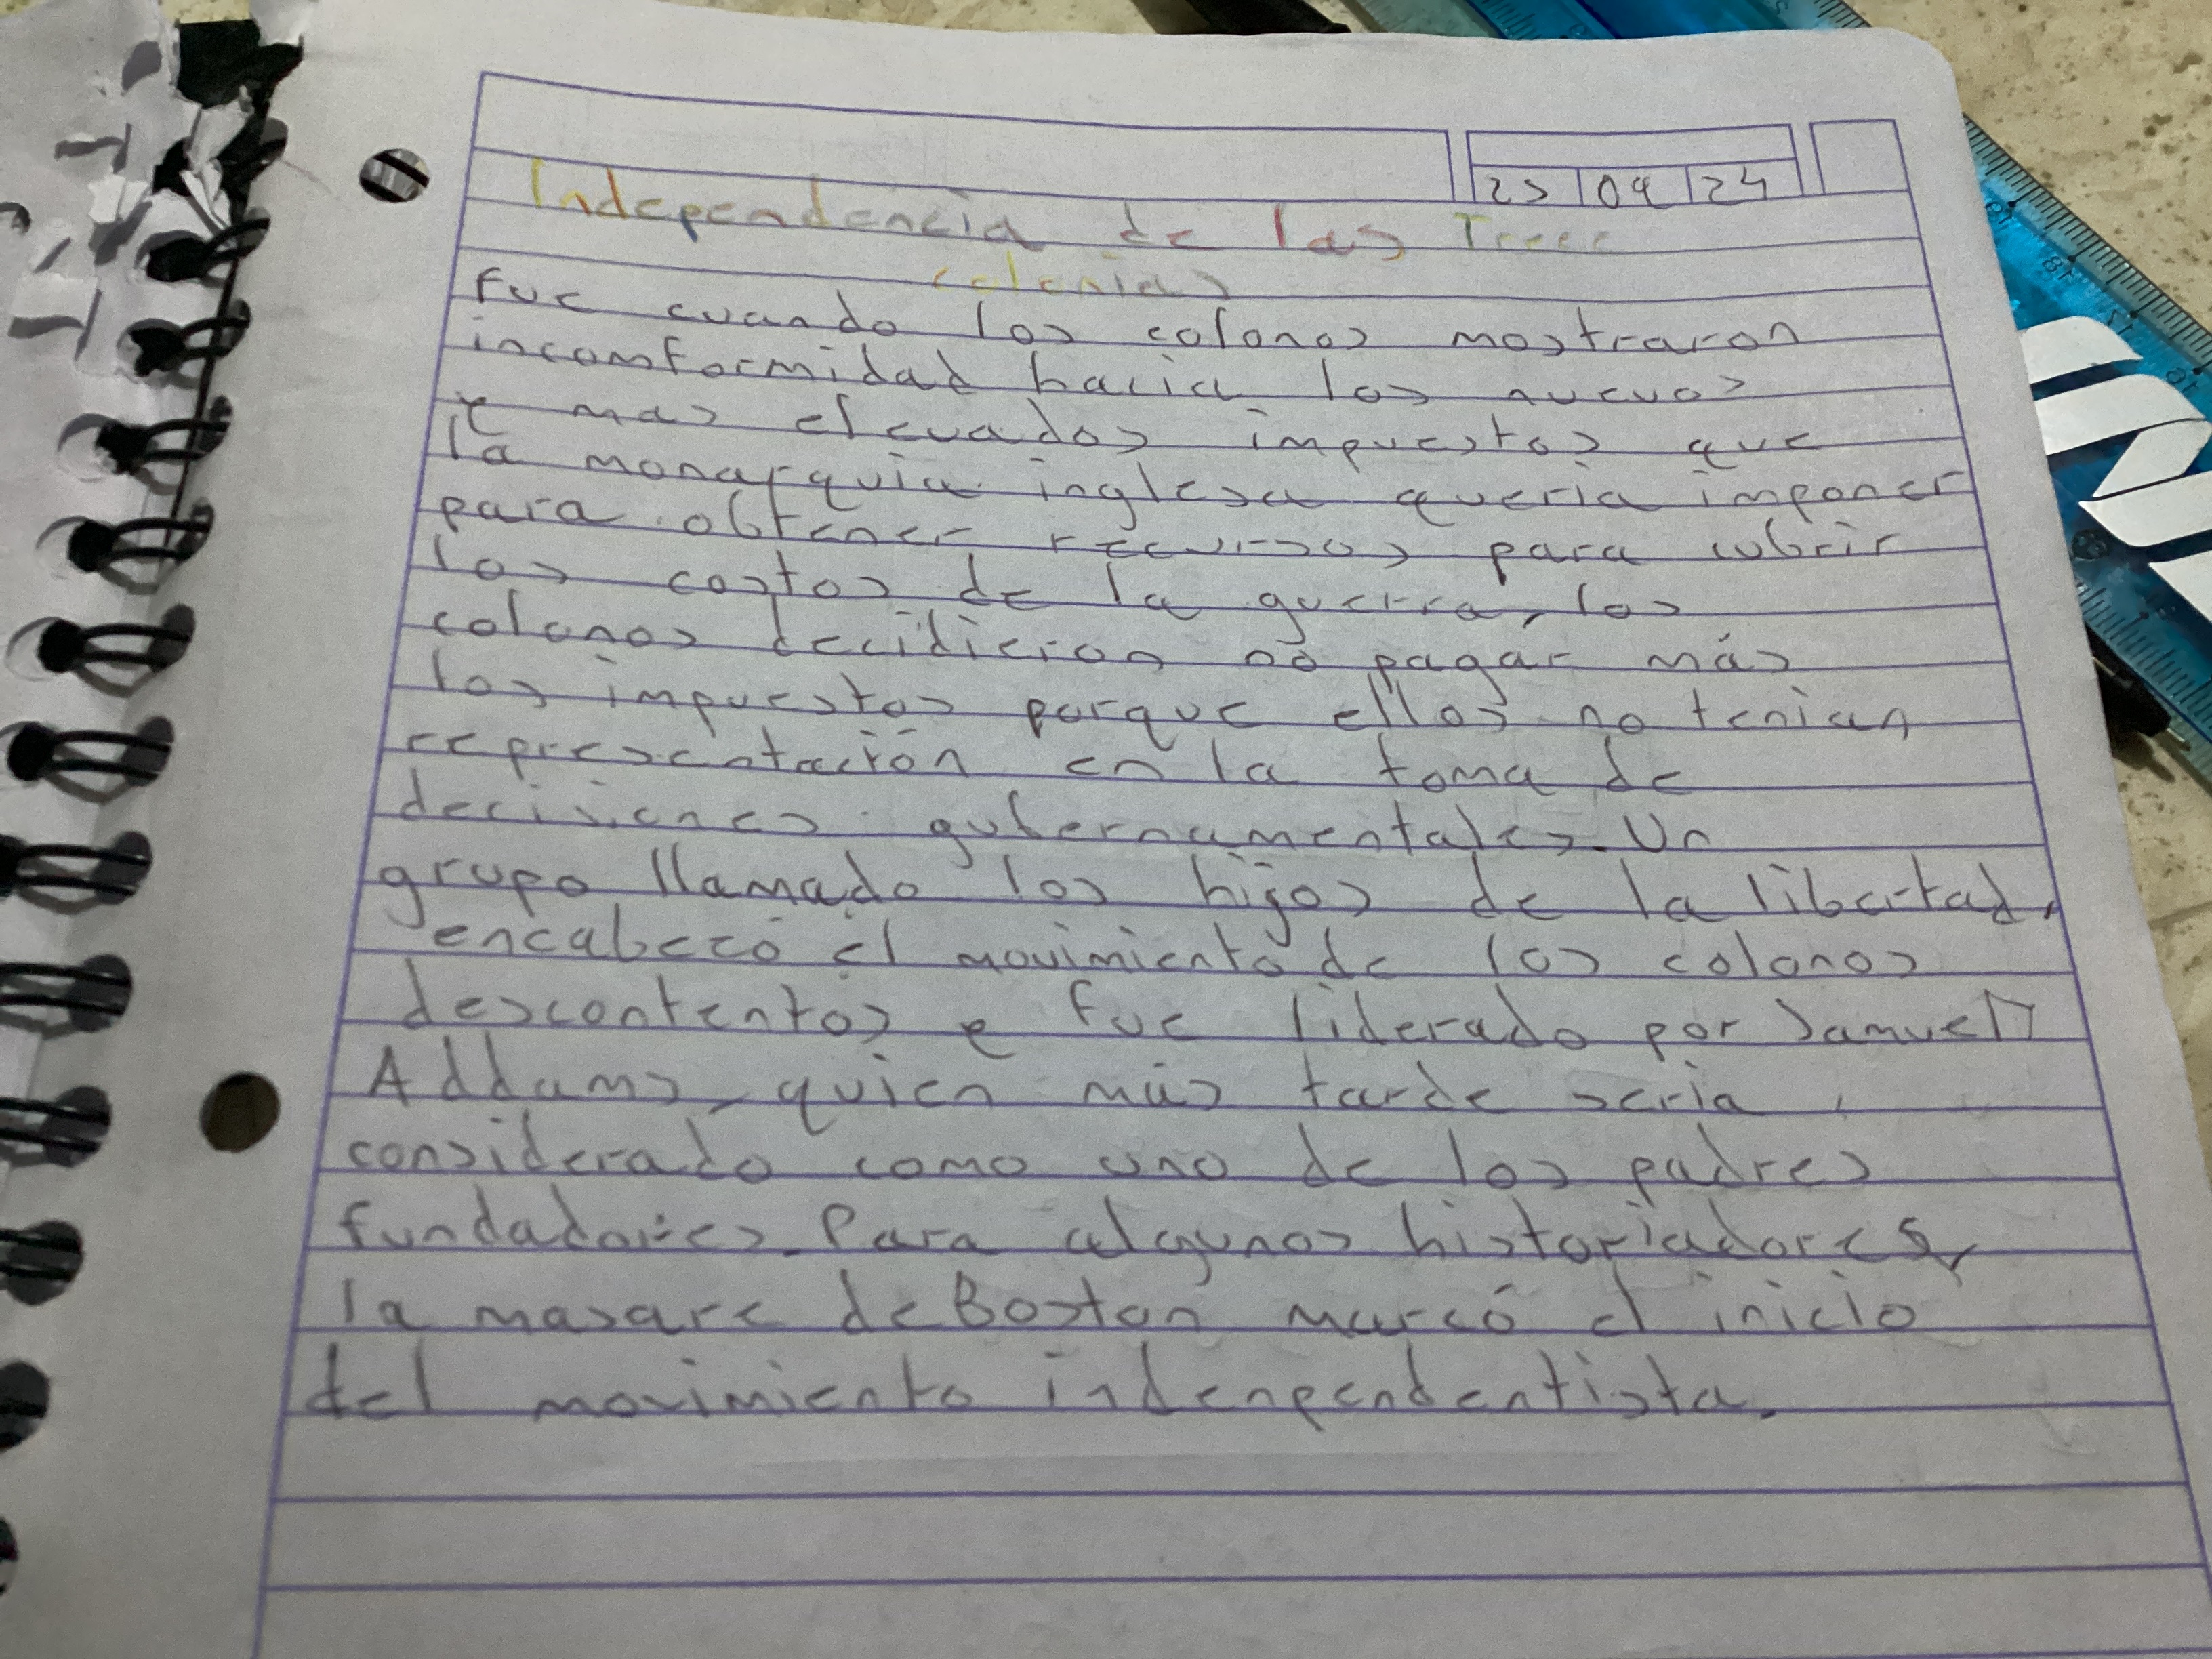 25 09 24
Independencia de las Trece
colonias
Fue cuando los colonos mostraron
incomformidad hacia los nuevos
y mas elevados impuestos que
la monarquia inglesa queria imponer
para obtener recursos para cubrir
los costos de la guerra, los
colonos decidieron no pagar más
los impuestos porque ellos no tenian
representación en la toma de
decisiones gubernamentales. Un
grupo llamado los hijos de la libertad,
encabezó el movimiento de los colonos
descontentos e fue liderado por Samuell
Addams, quien más tarde seria
considerado como uno de los padres
fundadores. Para algunos historiadores,
la masare de Boston marcó el inicio
del movimiento indenpendentista.